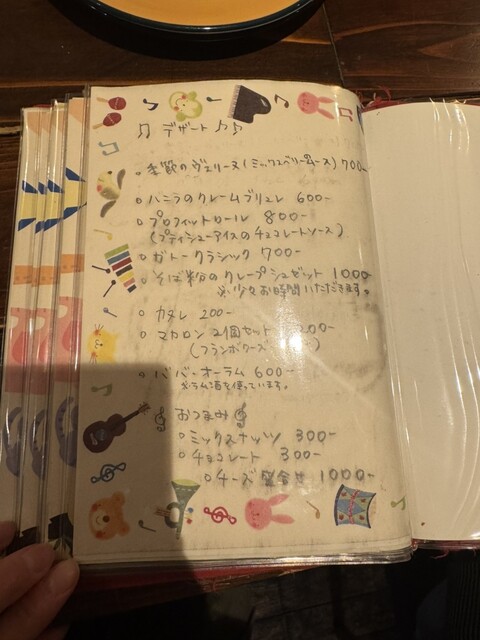 ♫ デザート ♪♪
・季節のヴェリーヌ(ミックスベリームース) 700-
○ バニラのクレームブリュレ 600-
○ プロフィットロール 800-
(プティシューアイスのチョコレートソース)
○ ガトークラシック 700-
○ そば粉のクレープシュゼット 1000
※少々お時間いただきます。
○ カヌレ 200-
○ マカロン 2個セット 200-
(フランボワーズ )
○ ババ・オーラム 600-
※ラム酒を使っています。
おつまみ
○ ミックスナッツ 300-
○ チョコレート 300-
○ チーズ盛合せ 1000-